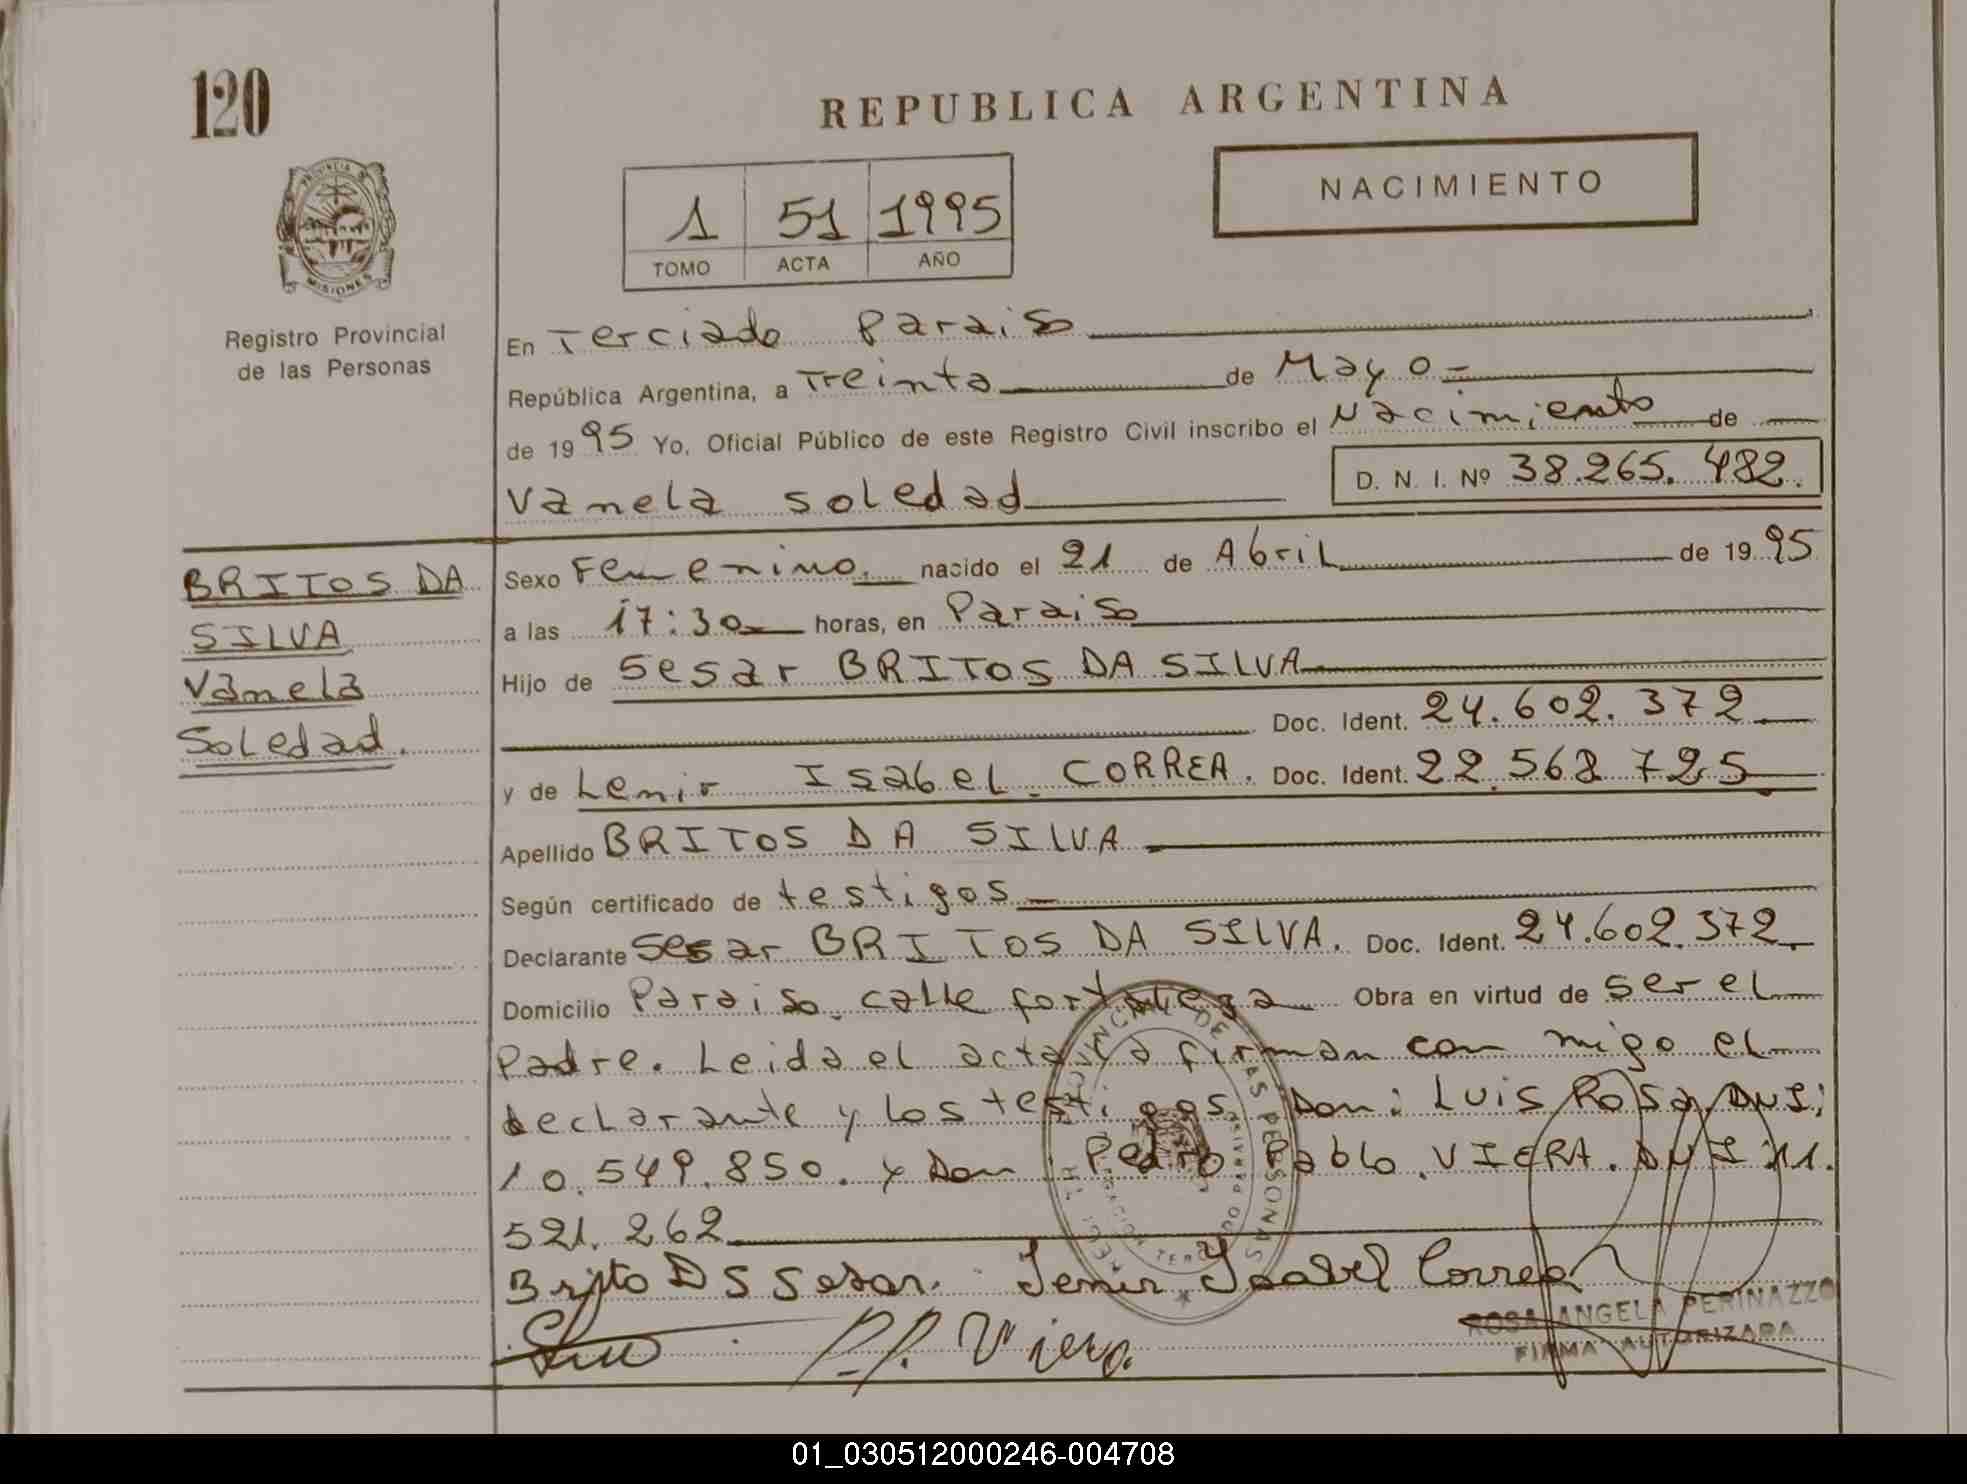 120
REPUBLICA ARGENTINA
NACIMIENTO
1 51 1995
TOMO ACTA AÑO
PROVINCIA DE
MISIONES
Registro Provincial
de las Personas
En Terciado Paraiso
República Argentina, a Treinta de Mayo-
de 1995 Yo, Oficial Público de este Registro Civil inscribo el Nacimiento de
Vanela Soledad
D. N. I. Nº 38.265.482.
BRITOS DA
SILVA
Vanela
Soledad.
Sexo Femenino. nacido el 21 de Abril de 1995
a las 17:30 horas, en Paraiso
Hijo de Sesar BRITOS DA SILVA
Doc. Ident. 24.602.372
y de Lenir Isabel CORREA. Doc. Ident. 22.568.725
Apellido BRITOS DA SILVA
Según certificado de testigos
Declarante Sesar BRITOS DA SILVA. Doc. Ident. 24.602.372.
Domicilio Paraiso. calle fortaleza Obra en virtud de ser el
Padre. Leida el acta la firman con migo el
declarante y los testigos Don: Luis Rosa DNI:
10.549.850. y Don Pedro Pablo VIERA. DNI 11.
521.262
Brito D S Sesar. Lenir Isabel Correa
P.P. Viera
ROSA ANGELA PERINAZZO
FIRMA AUTORIZADA
01_030512000246-004708